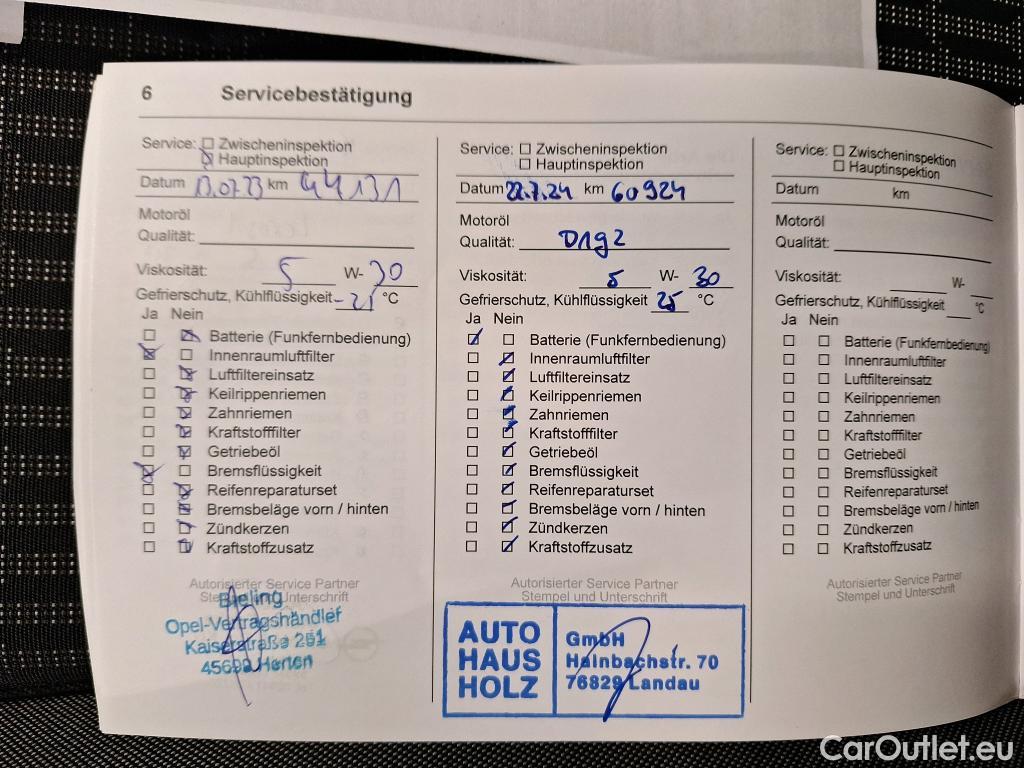 6 Servicebestätigung
Service: Zwischeninspektion
Hauptinspektion
Datum 13.07.23 km 44131
Motoröl
Qualität:
Viskosität: 5 W- 30
Gefrierschutz, Kühlflüssigkeit -21 °C
Ja Nein
Batterie (Funkfernbedienung)
Innenraumluftfilter
Luftfiltereinsatz
Keilrippenriemen
Zahnriemen
Kraftstofffilter
Getriebeöl
Bremsflüssigkeit
Reifenreparaturset
Bremsbeläge vorn / hinten
Zündkerzen
Kraftstoffzusatz
Autorisierter Service Partner
Stempel und Unterschrift
Bieling
Opel-Vertragshändler
Kaiserstraße
Herten
Service: Zwischeninspektion
Hauptinspektion
Datum 22.7.24 km 60924
Motoröl
Qualität: D1g2
Viskosität: 5 W- 30
Gefrierschutz, Kühlflüssigkeit 25 °C
Ja Nein
Batterie (Funkfernbedienung)
Innenraumluftfilter
Luftfiltereinsatz
Keilrippenriemen
Zahnriemen
Kraftstofffilter
Getriebeöl
Bremsflüssigkeit
Reifenreparaturset
Bremsbeläge vorn / hinten
Zündkerzen
Kraftstoffzusatz
Autorisierter Service Partner
Stempel und Unterschrift
AUTO
HAUS
HOLZ
GmbH
Hainbachstr. 70
76829 Landau
Service: Zwischeninspektion
Hauptinspektion
Datum km
Motoröl
Qualität:
Viskosität: W-
Gefrierschutz, Kühlflüssigkeit °C
Ja Nein
Batterie (Funkfernbedienung)
Innenraumluftfilter
Luftfiltereinsatz
Keilrippenriemen
Zahnriemen
Kraftstofffilter
Getriebeöl
Bremsflüssigkeit
Reifenreparaturset
Bremsbeläge vorn / hinten
Zündkerzen
Kraftstoffzusatz
Autorisierter Service Partner
Stempel und Unterschrift
CarOutlet.eu